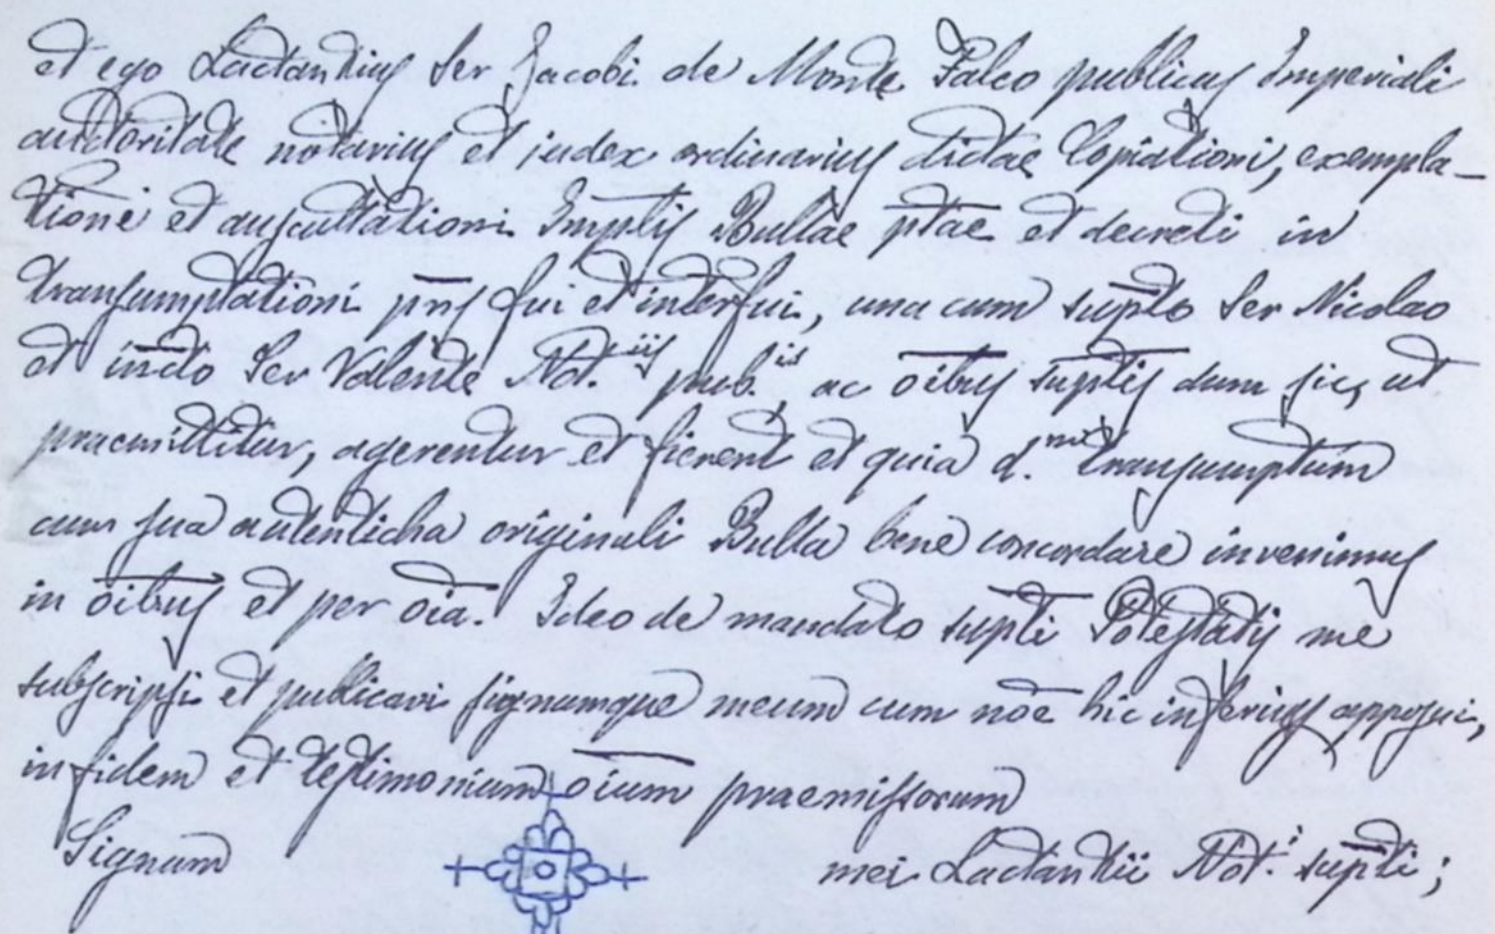 et ego Lactantius Ser Jacobi de Monte Falco publicus Imperiali
auctoritate notarius et judex ordinarius dictae Copiationi, exempla-
tioni et auscultationi Bullae ptae et decreti in
transumptationi pns fui et interfui, una cum supto Ser Nicolao
et indo Ser Valente Not.iis pub.is ac oibus suptis dum sic, ut
praemittitur, agerentur et fierent et quia d. transumptum
cum sua autenticha originali Bulla bene concordare invenimus
in oibus et per oia. Ideo de mandato supti Potestatis me
subscripsi et publicavi signumque meum cum noe hic inferius apposui,
in fidem et testimonium oium praemissorum
Signum mei Lactantii Not.i supti;